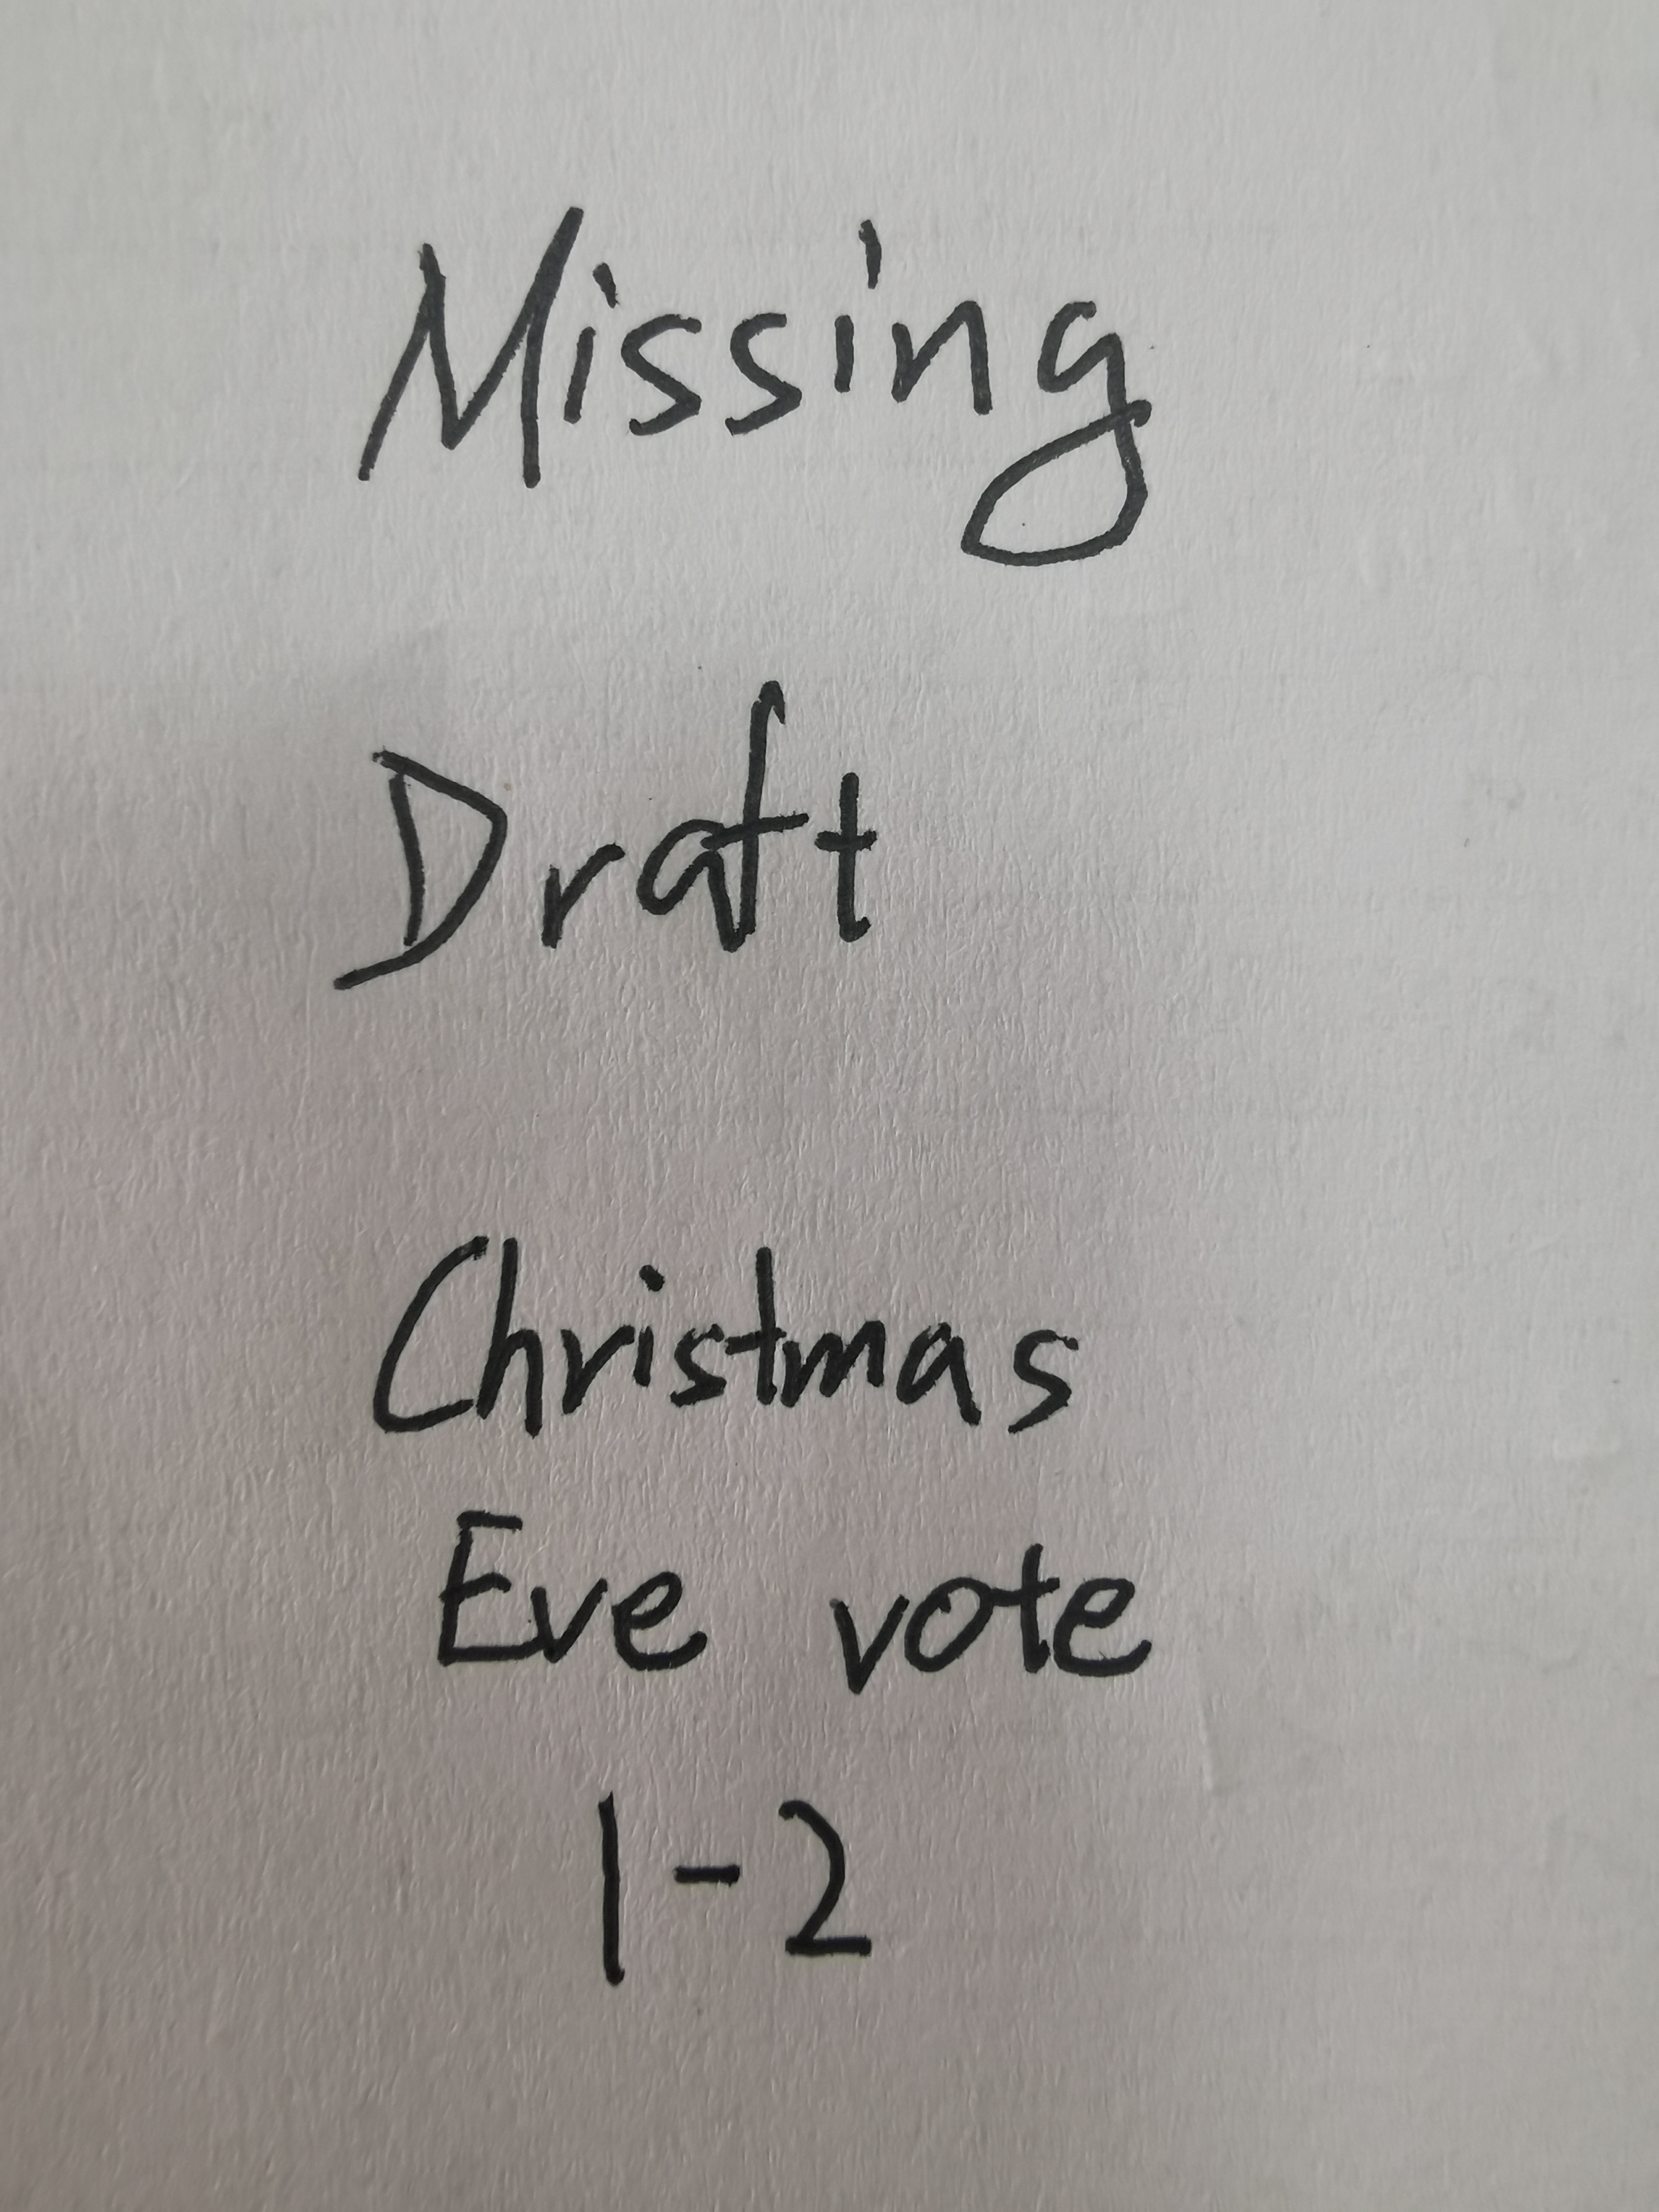 Missing
Draft
Christmas
Eve vote
1-2